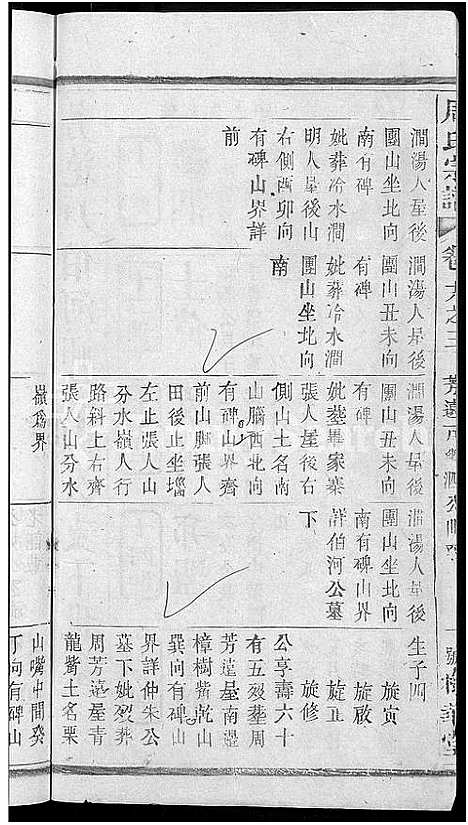 周氏宗譜
澗湯人屋後
團山坐北向
南有碑
妣葬冷水澗
明人屋後山
右側酉卯向
有碑山界詳
前
澗湯人屋後
團山丑未向
有碑
妣葬冷水澗
團山坐北向
南
澗湯人屋後
團山丑未向
有碑
妣塟畢家寨
張人屋後右
側山土名南
山腦西北向
有碑山界齊
前山脚張人
田後止坐墈
左止張山
分水嶺人行
路斜上右齊
張人山分水
嶺爲界
澗湯人屋後
團山坐北向
南有碑山界
詳伯河公墓
下
生子四
旋寅
旋啟
旋正
旋修
公享壽六十
有五歿塟周
芳遠屋南邊
樟樹嘴乾山
巽向有碑山
界詳仲朱公
墓下妣歿葬
周芳遠屋青
龍嘴土名栗
山嘴中間癸
丁向有碑山